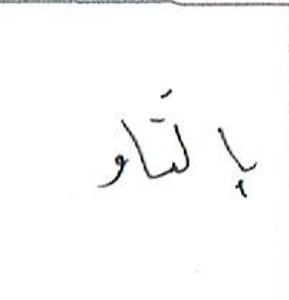 بالتَاو